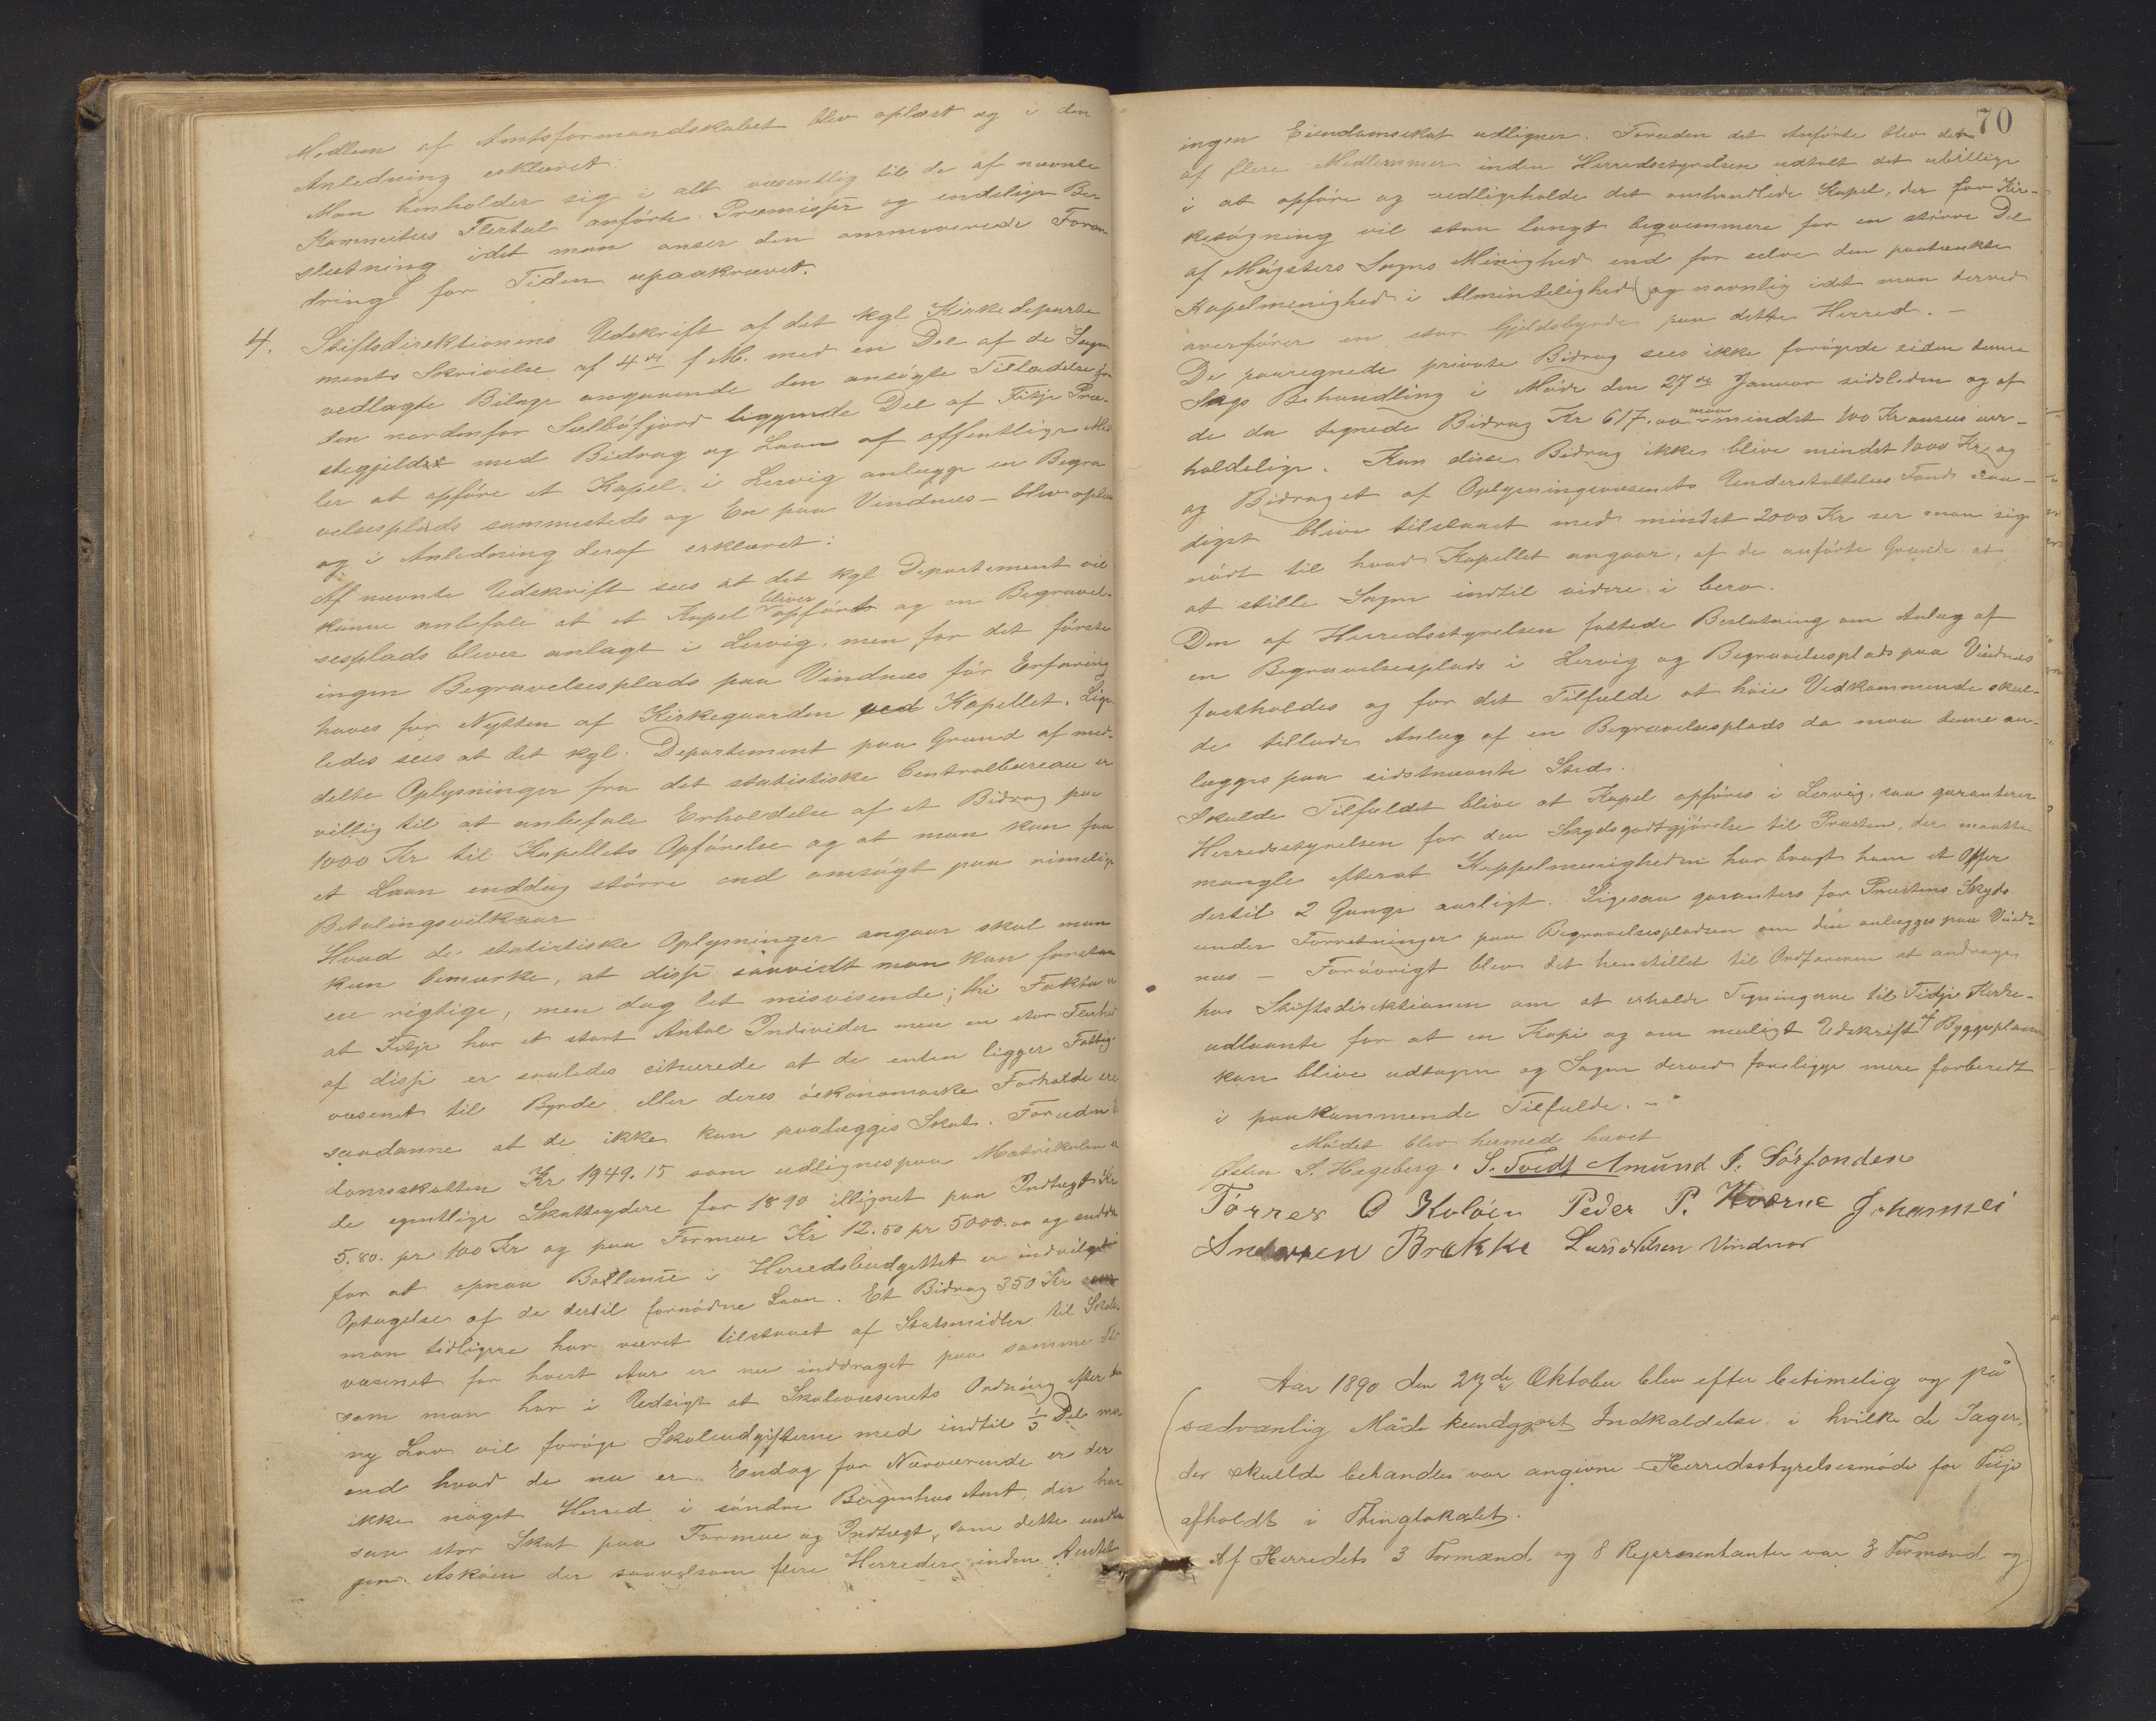 Medlem af Amtsformandskabet blev oplæst og i den
Anledning erklæret:
Man henholder sig i alt væsentlig til de af nævnte
Kommittes Flertal anførte Præmisser og endelige Be-
slutning idet man anser den ommeldte Foran
dring for Tiden upaakrævet.
4. Stiftsdirektionens Udskrift af det kgl Kirkedeparte
ments Skrivelse af 4de f M. med en Del af de Sagen
vedlagte Bilage angaaende den ansøgte Tilladelse for
den nordenfor Selbøfjord liggende Del af Fitje Præ-
stegjeldet med Bidrag og Laan af offentlige Mid
ler at opføre et Kapel i Lervig anlægge en Begra
velsesplads sammesteds og En paa Vindnæs – blev oplæst
og i Anledning deraf erklæret:
Af nævnte Udskrift sees at det kgl Departement vil
kunne anbefale at et Kapel bliver opført og en Begravel-
sesplads bliver anlagt i Lervig, men for det første
ingen Begravelsesplads paa Vindnæs før Erfaring
haves for Nytten af Kirkegaarden ved Kapellet. Lige
ledes sees at det kgl. Departement paa Grund af med-
delte Oplysninger fra det statistiske Centralbureau er
villig til at anbefale Erholdelse af et Bidrag paa
1000 Kr til Kapellets Opførelse og at man kan faa
et Laan enddog større end ansøgt paa rimelige
Betalingsvilkaar
Hvad de statistiske Oplysninger angaar skal man
kun bemærke, at disse saavidt man kan forstaa
ere rigtige, men dog let misvisende; thi Fakta er
at Fitje har et stort Antal Individer men en stor Flerhed
af disse er saaledes situerede at de enten ligger Fattig-
væsenet til Byrde eller deres økonomiske Forholde ere
saadanne at de ikke kan paalægges Skat. Foruden
domsskatten Kr 1949.15 som udlignes paa Matrikulen er
de egentlige Skatteydere for 1890 illignet paa Indtægt Kr
5.80. pr 100 Kr og paa Formue Kr 12.50 pr 5000.00 og endda
for at opnaa Ballance i Herredsbudgettet er indvilget
Optagelse af de dertil fornødne Laan. Et Bidrag 350 Kr som
man tidligere har været tilstaaet af Statsmidler til Skole-
væsenet for hvert Aar er nu inddraget paa samme Tid
som man har i Udsigt at Skolevæsenets Ordning efter den
ny Lov vil forøge Skoleudgifterne med indtil 1/3 Del mer
end hvad de nu er. Endog for Nærværende er der
ikke noget Herred i søndre Bergenhus Amt, der har
saa stor Skat paa Formue og Indtægt, som dette undta
gen Askøen der saavelsom flere Herreder inden Amtet
70
ingen Eiendomsskat udligner. Foruden det Anførte blev der
af flere Medlemmer inden Herredsstyrelsen udtalt det ubillige
i at opføre og vedligeholde det omhandlede Kapel, der for Kir-
kesøgning vil staa langt beqvemmere for en større Del
af Møgsters Sogns Menighed end for selve den paatænkte
Kapelmenighed i Almindelighed og navnlig idet man derved
overfører en stor Gjeldsbyrde paa dette Herred. –
De paaregnede private Bidrag sees ikke forøgede siden denne
Sags Behandling i Møde den 27de Januar sidstleden og af
de da tegnede Bidrag Kr 617.00 maa mindst 100 Kr ansees uer-
holdelige. Kan disse Bidrag ikke blive mindst 1000 Kr og
og Bidraget af Oplysningsvæsenets Understøttelses Fond saa-
ligst blive tilstaaet med mindst 2000 Kr ser man sig
nødt til hvad Kapellet angaar, af de anførte Grunde at
at stille Sagen indtil videre i bero.
Den af Herredsstyrelsen fattede Beslutning om Anlæg af
en Begravelsesplads i Lervig og Begravelsesplads paa Vindnæs
fastholdes og for det Tilfælde at høie Vedkommende skul-
de tillade Anlæg af en Begravelsesplads da maa denne an-
lægges paa sidstnævnte Sted.
Skulde Tilfældet blive at Kapel opføres i Lervig, saa garanterer
Herredsstyrelsen for den Skydsgodtgjørelse til Præsten, der maatte
mangle efterat Kappelmenigheden har bragt ham et Offer
dertil 2 Gange aarligt. Ligesaa garanters for Præstens Skyds
under Forretninger paa Begravelsespladsen om den anlægges paa Vind-
næs. – Forøvrigt blev det henstillet til Ordføreren at andrage
hos Stiftsdirektionen om at erholde Tegningerne til Fidje Kirke
udlaante for at en Kopi og om muligt Udskrift af Byggeplanen
kan blive udtagen og Sagen derved foreligge mere forberedt
i paakommende Tilfælde. –
Mødet blev hermed hævet
Østen S. Hageberg. S. Tvedt Amund J. Sørfonden
Tørres O Koløen Peder P. Kværne Johannes
Andersen Brakke Lars Nilsen Vindnæs
Aar 1890 den 27de Oktober blev efter betimelig og på
sædvanlig Måde kundgjort Indkaldelse i hvilke de Sager,
der skulde behandles var angivne Herredsstyrelsesmøde for Fitje
afholdt i Thinglokalet.
Af Herredets 3 Formænd og 8 Repræsentanter var 3 Formænd og